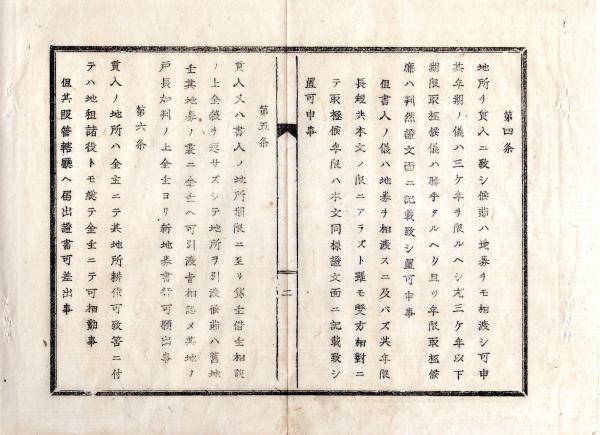 第四条
地所ヲ質入ニ致シ候節ハ地券ヲモ相渡シ可申
其年期ノ儀ハ三ケ年ヲ限ルヘシ尤三ケ年以下
期限取極候儀ハ勝手タルヘク且ツ年限取極候
廉ハ判然證文面ニ記載致シ置可申事
但書入ノ儀ハ地券ヲ相渡スニ及バズ其年限
長短共本文ノ限ニアラズト雖モ雙方相對ニ
テ取極候年限ハ本文同様證文面ニ記載致シ
置可申事
二
第五条
質入又ハ書入ノ地所期限ニ至リ貸主借主相談
ノ上金穀ヲ返サズシテ地所ヲ引渡候節ハ舊地
主其地券ノ裏ニ金主ヘ可引渡旨相認メ其地ノ
戸長加判ノ上金主ヨリ新地券書替可願出事
第六条
質入ノ地所ハ金主ニテ其地所耕作可致筈ニ付
テハ地租諸役トモ総テ金主ニテ可相勤事
但其段管轄廳ヘ届出證書可差出事